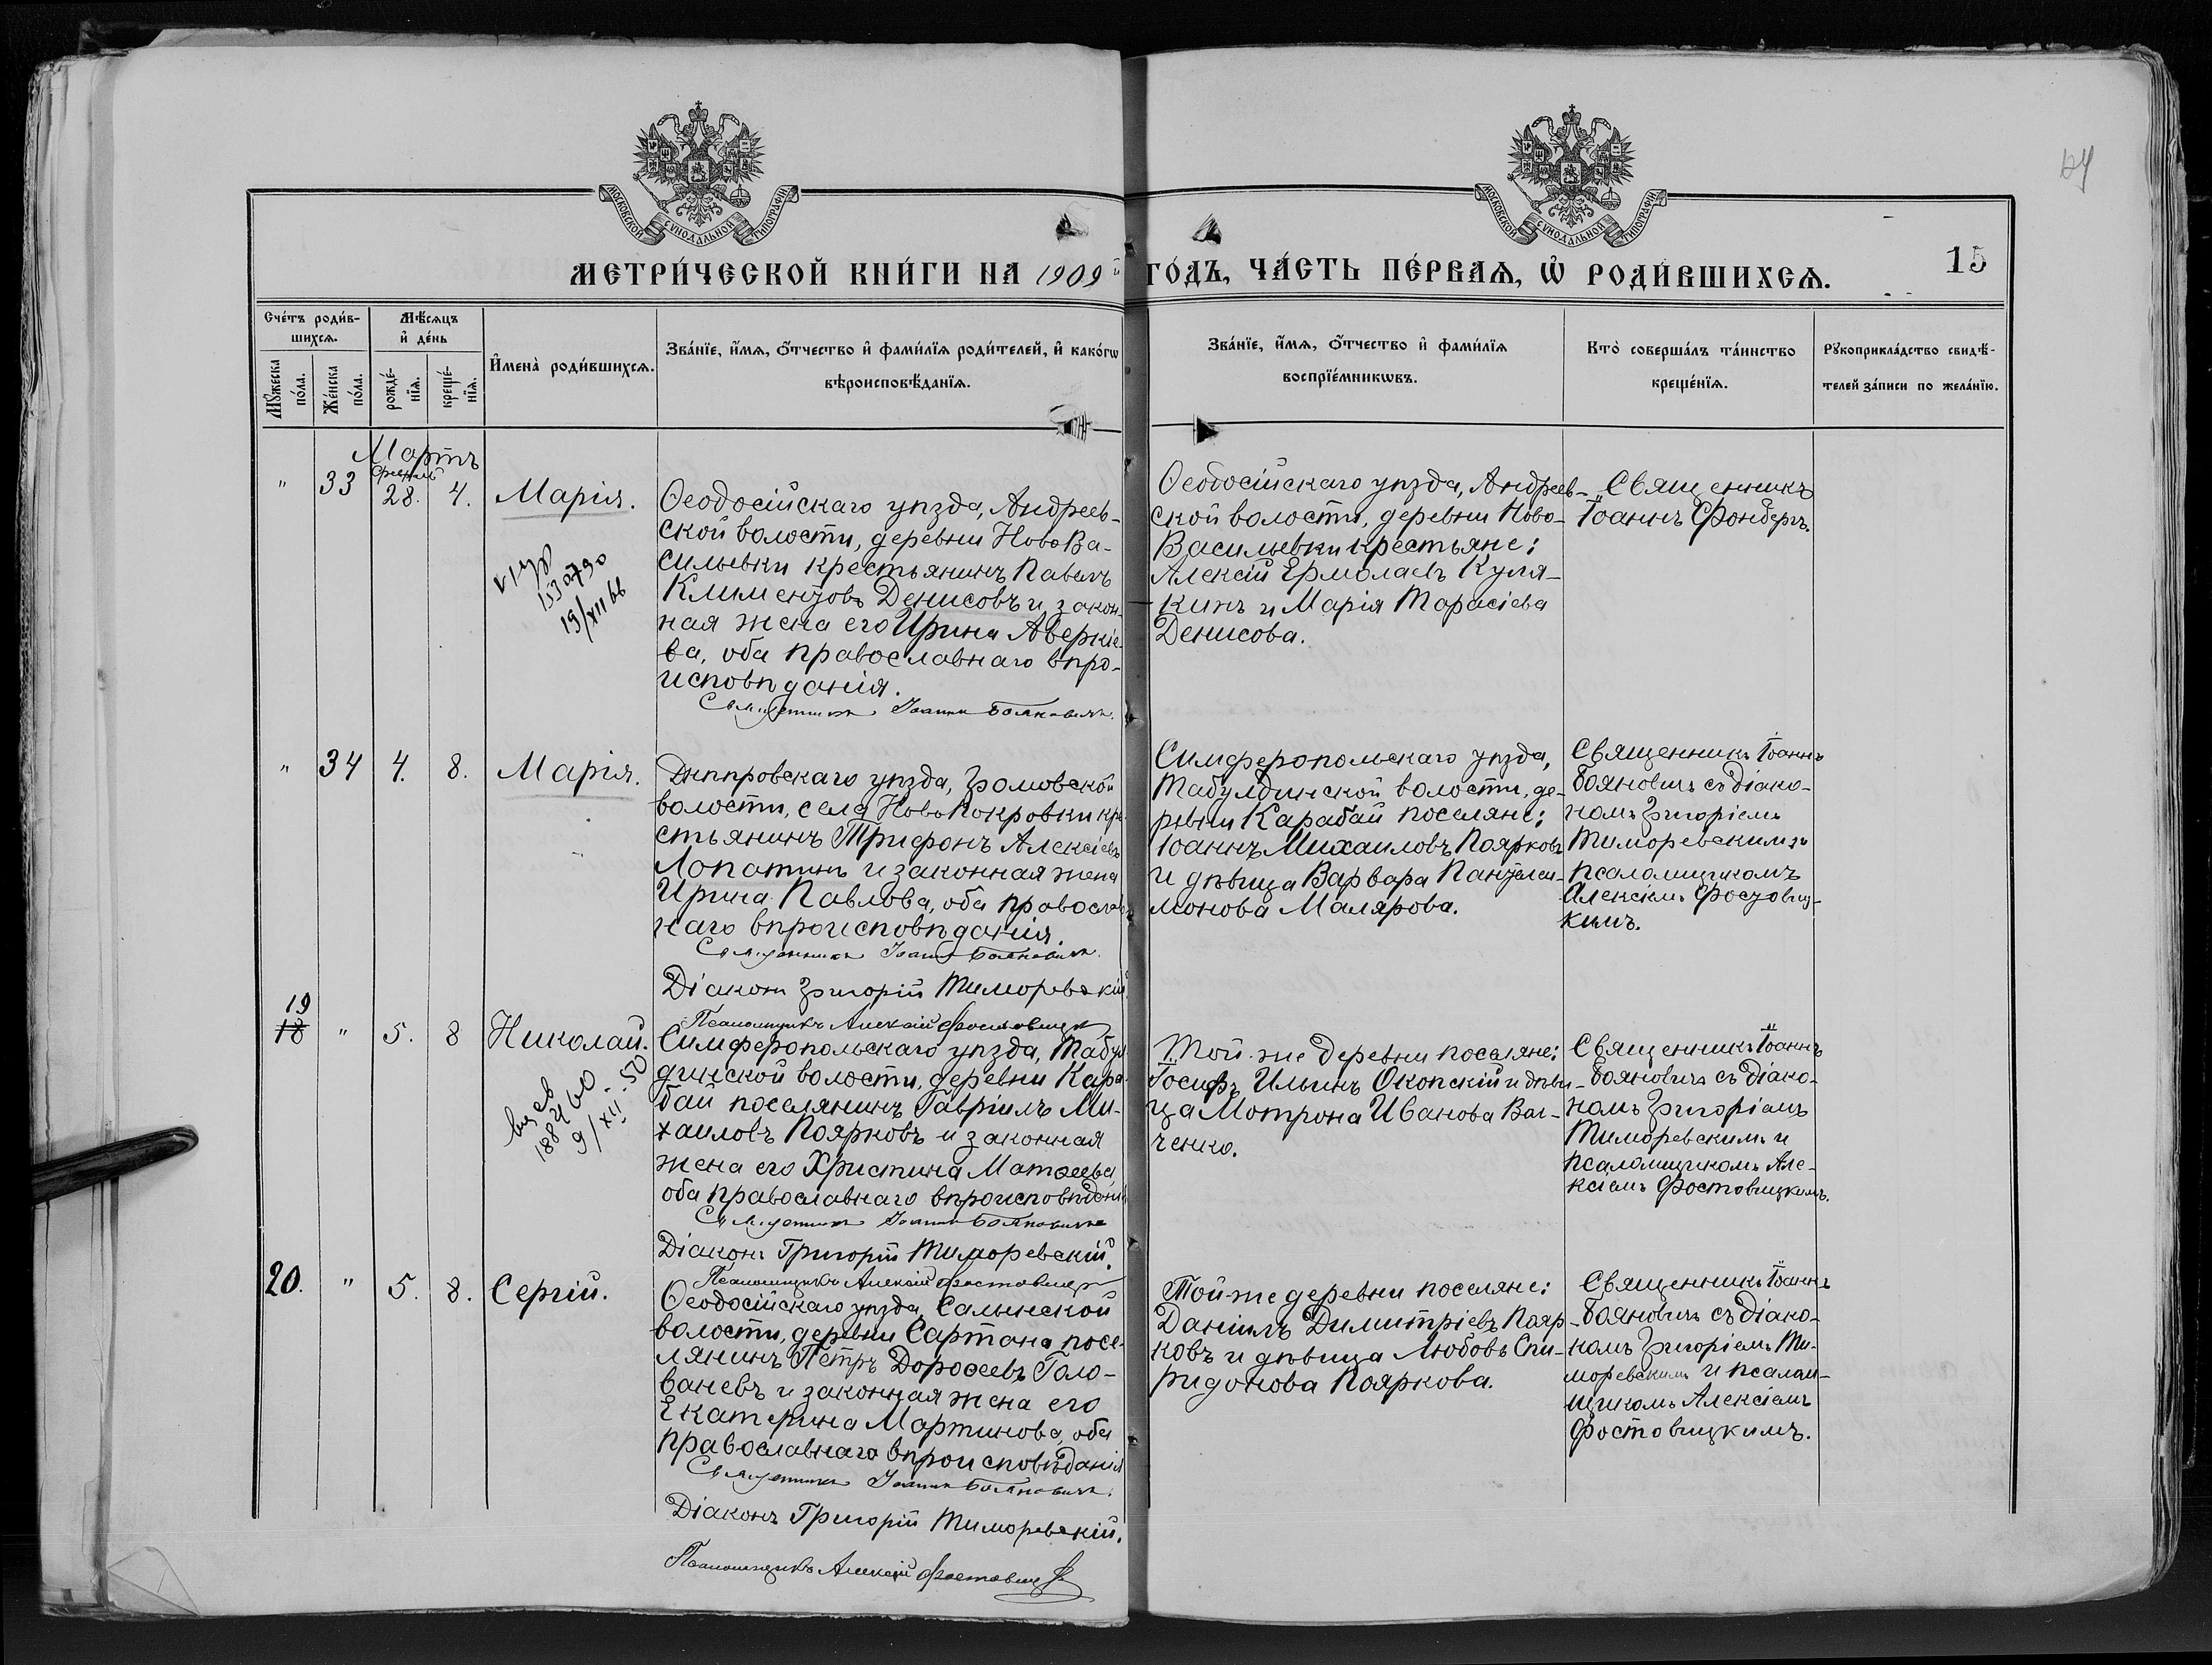 МОСКОВСКОЙ СѴНОДАЛЬНОЙ ТИПОГРАФІИ
МОСКОВСКОЙ СѴНОДАЛЬНОЙ ТИПОГРАФІИ
МЕТРИ́ЧЕСКОЙ КНИ́ГИ НА 1909й ГО́ДЪ, ЧА́СТЬ ПЕ́РВАѦ, Ѡ҆ РОДИ́ВШИХСѦ.
15
Сче́тъ роди́в-
шихсѧ.
Мꙋ́жеска по́ла.
Же́нска по́ла.
Мѣ́сѧцъ
и҆ де́нь
рожде́-
нїѧ.
креще́-
нїѧ.
И҆мена̀ роди́вшихсѧ.
Зва́нїе, и҆́мѧ, ѻ҆́тчество и҆ фами́лїѧ роди́телей, и҆ како́гѡ
вѣроисповѣ́данїѧ.
Зва́нїе, и҆́мѧ, ѻ҆́тчество и҆ фами́лїѧ
воспрїе́мникѡвъ.
Кто̀ соверша́лъ та́инство
креще́нїѧ.
Рꙋкоприкла́дство свидѣ́-
телей за́писи по жела́нїю.
Мартъ
" 33 Февраль 28. 4. Марія.
19/XII 66
Ѳеодосійскаго уѣзда, Андреев-
ской волости, деревни НовоВа-
сильевки крестьянинъ Павелъ
Климентовъ Денисовъ и закон-
ная жена его Ирина Аверкіе-
ва, оба православнаго вѣро-
исповѣданія.
Священникъ Іоаннъ Бояновичъ.
Ѳеодосійскаго уѣзда, Андреев-
ской волости, деревни Ново-
Васильевки крестьяне:
Алексій Ермолаевъ Куля-
кинъ и Марія Тарасіева
Денисова.
Священникъ
Іоаннъ Фонбергъ.
" 34 4. 8. Марія.
Днѣпровскаго уѣзда, Громовской
волости, села НовоПокровки кре
стьянинъ Трифонъ Алексіевъ
Лопатинъ и законная жена
Ирина Павлова, оба православ
наго вѣроисповѣданія.
Священникъ Іоаннъ Бояновичъ.
Діаконъ Григорій Тиморевскій
Псаломщикъ Алексій Фостовицкій
Симферопольскаго уѣзда,
Табулдинской волости, де-
ревни Карабай поселяне:
Іоаннъ Михаиловъ Поярковъ
и дѣвица Варвара Пантелеи-
монова Малярова.
Священникъ Іоаннъ
Бояновичъ съ діако-
номъ Григоріемъ
Тиморевскимъ и
псаломщикомъ
Алексіемъ Фостовиц-
кимъ.
19
18 " 5. 8 Николай.
188460
9/XII-50
Симферопольскаго уѣзда, Табул
динской волости, деревни Кара
бай поселянинъ Гавріилъ Ми-
хаиловъ Поярковъ и законная
жена его Христина Матѳеева,
оба православнаго вѣроисповѣдані
Священникъ Іоаннъ Бояновичъ
Діаконъ Григорій Тиморевскій.
Псаломщикъ Алексій Фостовицкій
Той-же деревни поселяне:
Іосифъ Ильинъ Окопскій и дѣви-
ца Мотрона Иванова Ват-
ченко.
Священникъ Іоаннъ
Бояновичъ съ діако-
номъ Григоріемъ
Тиморевскимъ и
псаломщикомъ Але-
ксіемъ Фостовицкимъ.
20. " 5. 8. Сергій.
Ѳеодосійскаго уѣзда, Салынской
волости, деревни Сартана посе-
лянинъ Петръ Дороѳеевъ Голо-
ваневъ и законная жена его
Екатерина Мартинова, оба
православнаго вѣроисповѣданія
Священникъ Іоаннъ Бояновичъ.
Діаконъ Григорій Тиморевскій.
Псаломщикъ Алексій Фостовицкій
Той-же деревни поселяне:
Даніилъ Димитріевъ Пояр-
ковъ и дѣвица Любовь Спи-
ридонова Пояркова.
Священникъ Іоаннъ
Бояновичъ съ діако-
номъ Григоріемъ Ти-
моревскимъ и псалом-
щикомъ Алексіемъ
Фостовицкимъ.